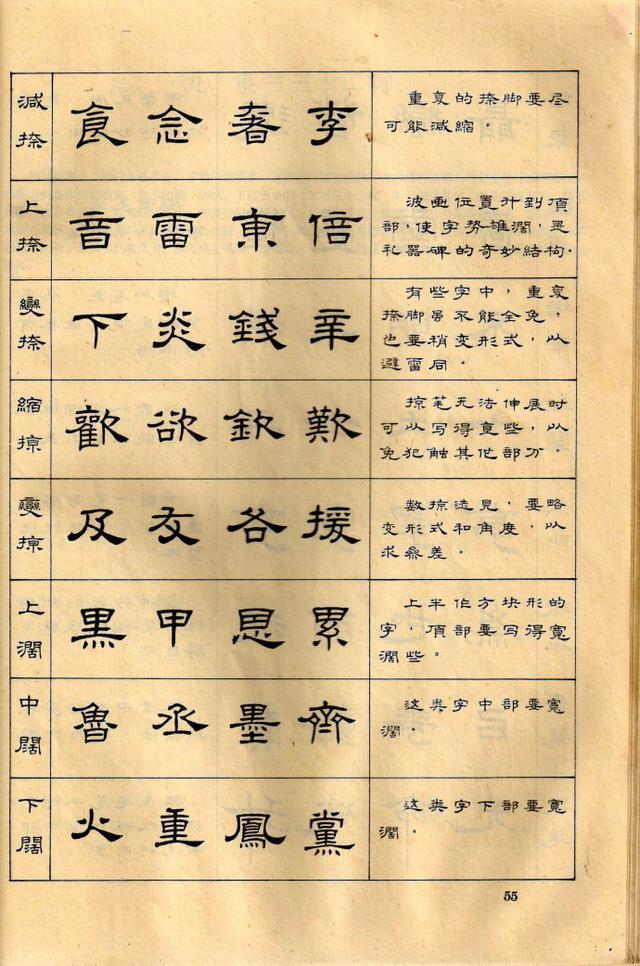 減捺
食 念 春 李
重复的捺脚要尽
可能減縮．
上捺
音 雷 東 倍
波画位置升到頂
部，使字势雄濶，是
礼器碑的奇妙結构．
變捺
下 炎 錢 幸
有些字中，重复
捺脚虽不能全免，
也要稍变形式，以
避雷同
縮掠
歡 欲 欽 歎
掠笔无法伸展时
可以写得意些，以
免犯触其他部分。
變掠
及 友 各 援
数掠迭見，要略
变形式和角度，以
求参差．
上濶
黒 甲 思 累
上半作方块形的
字，頂部要写得寬
濶些。
中闊
魯 丞 墨 齊
这类字中部要寬
濶．
下闊
火 重 鳳 黨
这类字下部要寬
濶．
55